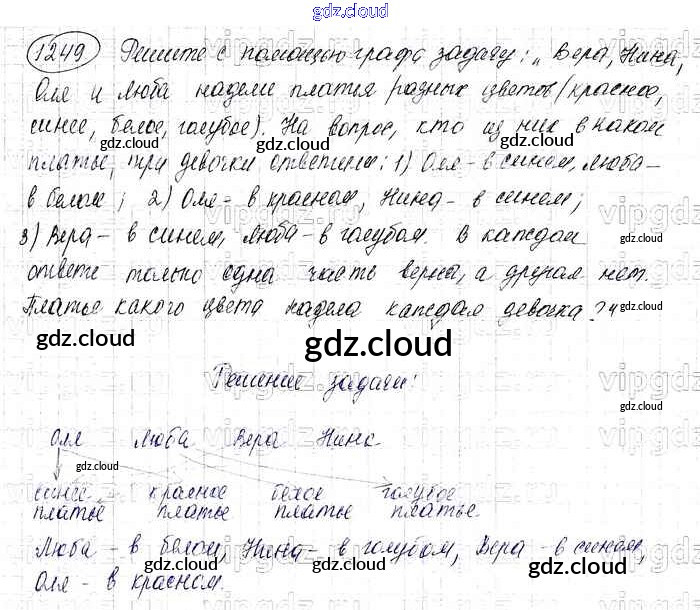 gdz.cloud
1249 Решите с помощью графа задачу: „Вера, Нина,
Оля и Люба надели платья разных цветов (красное,
синее, белое, голубое). На вопрос, кто из них в каком
платье, три девочки ответили: 1) Оля - в синем, Люба -
в белом; 2) Оля - в красном, Нина - в синем;
3) Вера - в синем, Люба - в голубом. В каждом
ответе только одна часть верна, а другая нет.
Платье какого цвета надела каждая девочка?"
Решение задачи:
Оля Люба Вера Нина
синее красное белое голубое
платье платье платье платье.
Люба - в белом, Нина - в голубом, Вера - в синем,
Оля - в красном.
gdz.cloud
gdz.cloud
gdz.cloud
gdz.cloud
gdz.cloud
gdz.cloud
gdz.cloud
gdz.cloud
gdz.cloud
gdz.cloud